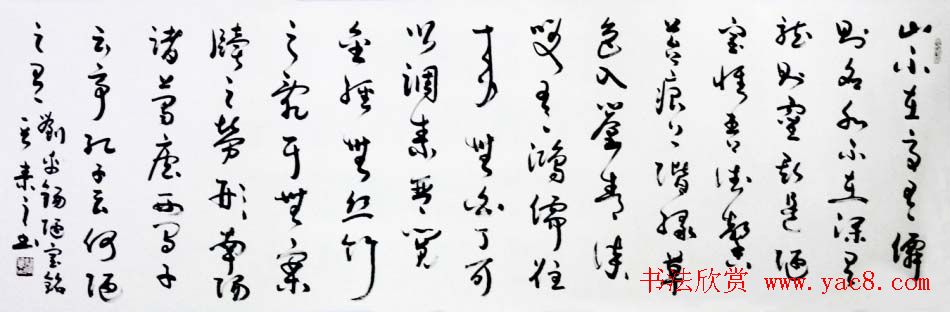 山不在高有僊
則名水不在深有
龍則靈斯是陋
室惟吾德馨
苔痕上階緑草
色入簾青談
笑有鴻儒往
来無白丁可
以調素琴閱
金經無丝竹
之亂耳無案
牘之勞形南陽
諸葛廬西蜀子
云亭孔子云何陋
之有
劉禹錫陋室銘
书法欣赏 www.yac8.com